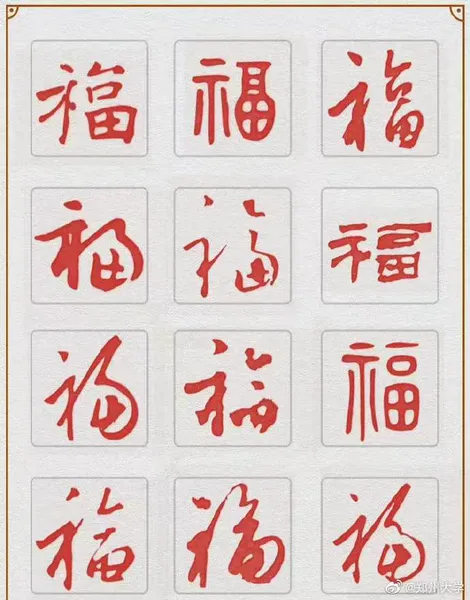 福 福 福
福 福 福
福 福 福
福 福 福
@郑州大学